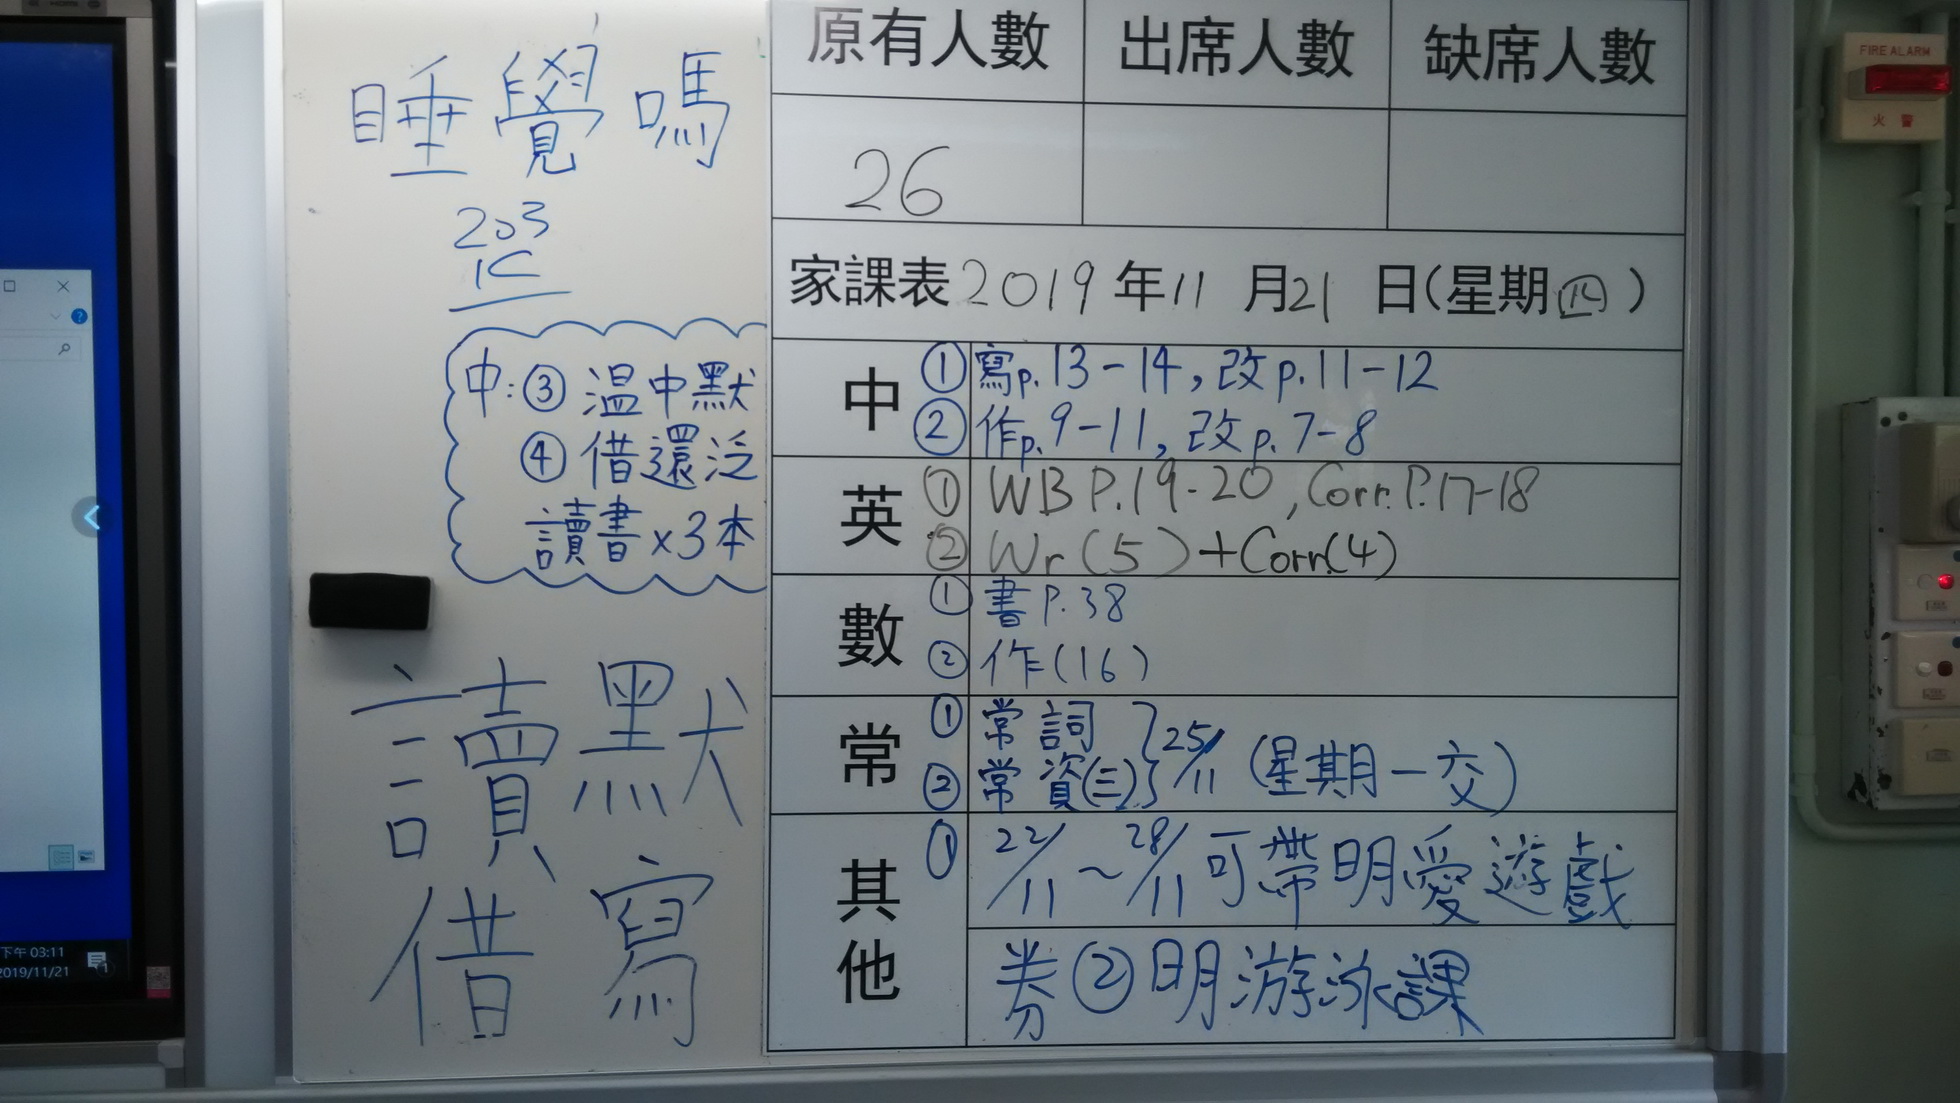 睡覺嗎
203
1C
中:③ 溫中默
④ 借還泛
讀書x3本
讀默
借寫
原有人數 出席人數 缺席人數
26
家課表 2019 年 11 月 21 日(星期四)
中 ① 寫p.13-14, 改p.11-12
② 作p.9-11, 改p.7-8
英 ① WB P.19-20, Corr. P.17-18
② Wr(5)+Corr.(4)
數 ① 書P.38
② 作(16)
常 ① 常詞 } 25/11 (星期一交)
② 常資(三)
其他 ① 22/11~28/11可帶明愛遊戲
券②明游泳課
FIRE ALARM
火警
下午 03:11
2019/11/21